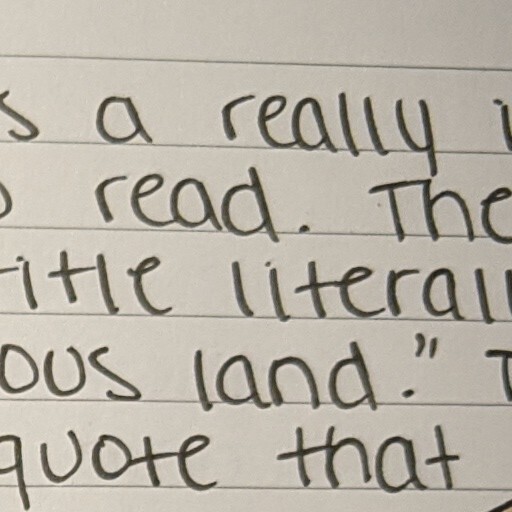 s a really i
read. The
title literall
ous land." T
quote that